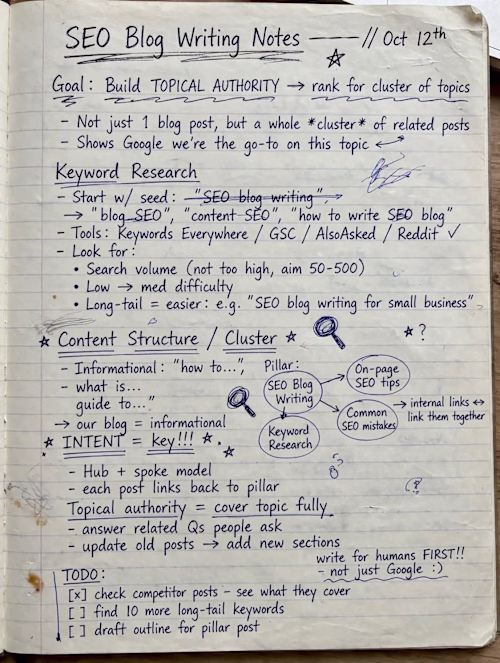 SEO Blog Writing Notes — // Oct 12th
Goal: Build TOPICAL AUTHORITY → rank for cluster of topics
- Not just 1 blog post, but a whole *cluster* of related posts
- Shows Google we're the go-to on this topic ↔
Keyword Research
- Start w/ seed: "SEO blog writing",
→ "blog SEO", "content SEO", "how to write SEO blog"
- Tools: Keywords Everywhere / GSC / AlsoAsked / Reddit ✓
- Look for:
• Search volume (not too high, aim 50-500)
• Low → med difficulty
• Long-tail = easier: e.g. "SEO blog writing for small business"
★ Content Structure / Cluster ★
★?
- Informational: "how to...",
- what is...
guide to..."
→ our blog = informational
Pillar:
SEO Blog
Writing
On-page
SEO tips
Common
SEO mistakes
→ internal links ↔
link them together
Keyword
Research
★ INTENT = key!!! ★
- Hub + spoke model
- each post links back to pillar
(?
Topical authority = cover topic fully
- answer related Qs people ask
- update old posts → add new sections
write for humans FIRST!!
- not just Google :)
TODO:
[x] check competitor posts - see what they cover
[ ] find 10 more long-tail keywords
[ ] draft outline for pillar post